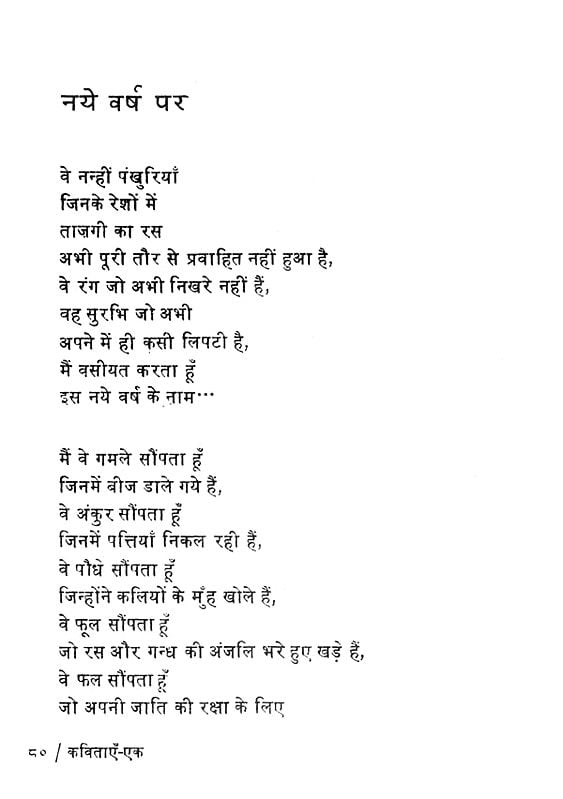 नये वर्ष पर
वे नन्हीं पंखुरियाँ
जिनके रेशों में
ताज़गी का रस
अभी पूरी तौर से प्रवाहित नहीं हुआ है,
वे रंग जो अभी निखरे नहीं हैं,
वह सुरभि जो अभी
अपने में ही कसी लिपटी है,
मैं वसीयत करता हूँ
इस नये वर्ष के नाम···
मैं वे गमले सौंपता हूँ
जिनमें बीज डाले गये हैं,
वे अंकुर सौंपता हूँ
जिनमें पत्तियाँ निकल रही हैं,
वे पौधे सौंपता हूँ
जिन्होंने कलियों के मुँह खोले हैं,
वे फूल सौंपता हूँ
जो रस और गन्ध की अंजलि भरे हुए खड़े हैं,
वे फल सौंपता हूँ
जो अपनी जाति की रक्षा के लिए
८० / कविताएँ-एक